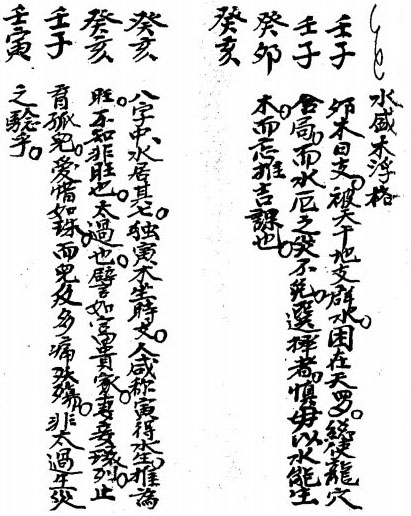 水盛木浮格
壬子 卯木日支。被天干地支群水。困在天罗。縱使龍穴
壬子 合局。而水厄之災不免。選擇者。慎毋以水能生
癸卯 木而忘推吉課也。
癸亥
癸亥 八字中。水居其七。独寅木坐時支。人咸称寅得水生。推為
癸亥 旺。不知非旺也。太過也。譬如富貴家。妻妾環列。止
壬子 育孤兒。愛惜如珠。而兒反多病殀殤。非太過生災
壬寅 之驗乎。